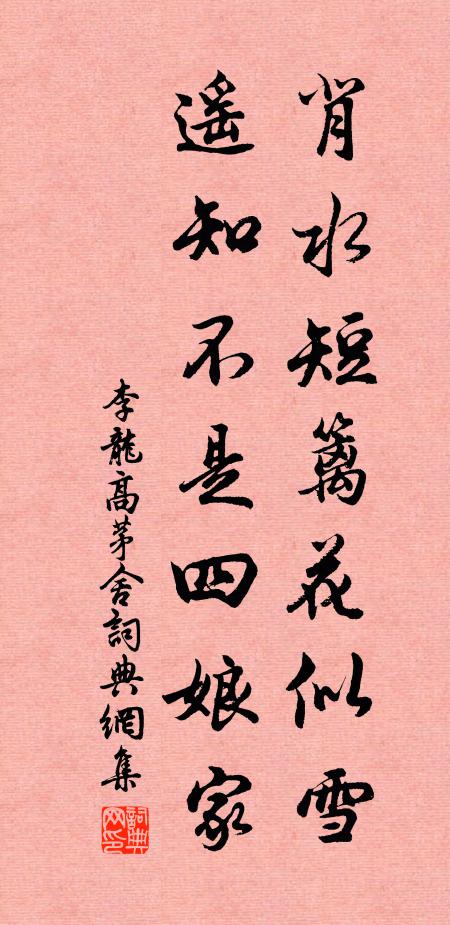 背水短籬花似雪
遥知不是四娘家
李龍高茅舍詞典網集
詞典
网印